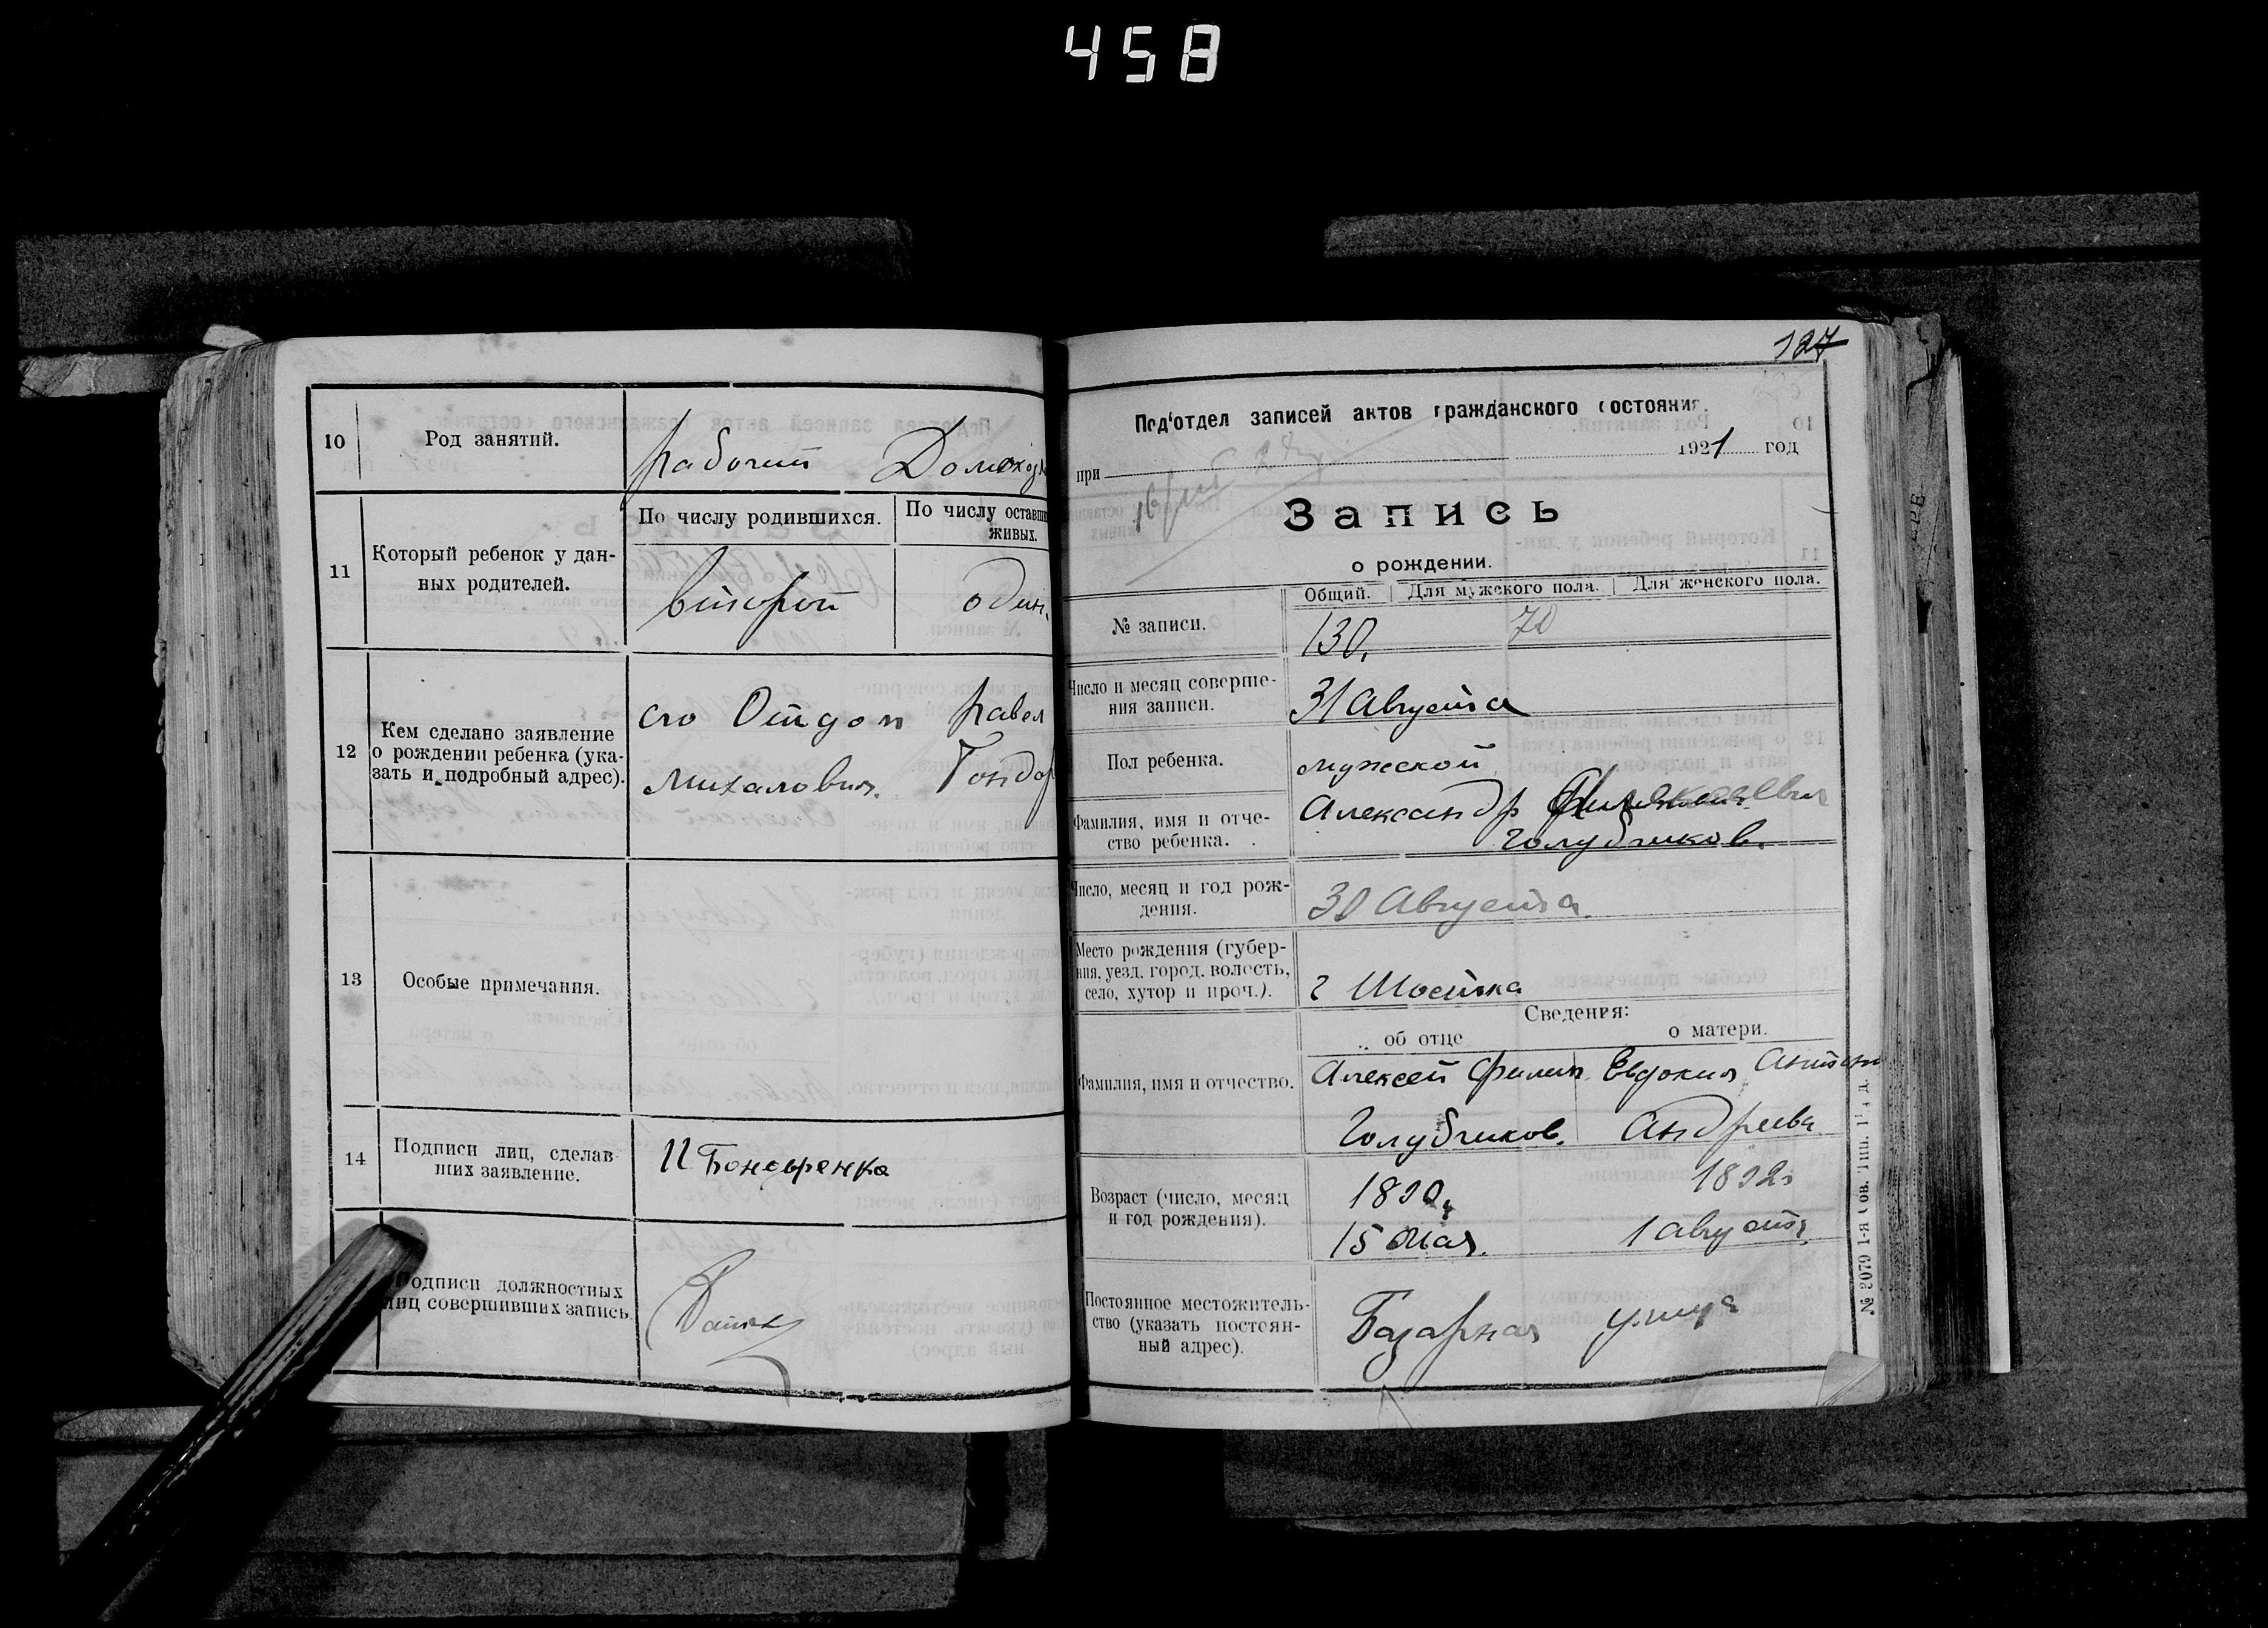 458
10 Род занятий. рабочий Домохоз
11 Который ребенок у дан-
ных родителей.
По числу родившихся. По числу оставш
живых.
второй один.
12 Кем сделано заявление
о рождении ребенка (ука-
зать и подробный адрес).
его Отцом Павел
Михалович.
13 Особые примечания.
14 Подписи лиц, сделав-
ших заявление.
Подписи должностных
лиц совершивших запись.
127
Под'отдел записей актов гражданского состояния.
при 1921 год
Запись
о рождении.
Общий. Для мужского пола. Для женского пола.
№ записи. 130. 70
Число и месяц соверше-
ния записи. 31 Августа
Пол ребенка. мужской
Фамилия, имя и отче-
ство ребенка.
Александр
Голубчиков.
Число, месяц и год рож-
дения. 30 Августа.
Место рождения (губер-
ния, уезд, город, волость,
село, хутор и проч.). г Шостка
Сведения:
об отце о матери.
Фамилия, имя и отчество. Алексей Филип Евдокия Антон
Голубчиков. Андреева
Возраст (число, месяц
и год рождения).
1890 1892
15 Мая. 1 августа.
Постоянное местожитель-
ство (указать постоян-
ный адрес).
Базарная улица
№ 2079 1-я Сов. Тип.